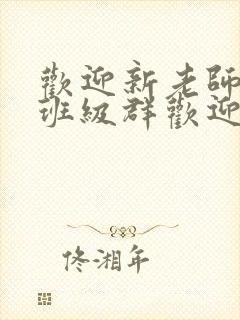 歡迎新老師
班級群歡迎
佟湘年